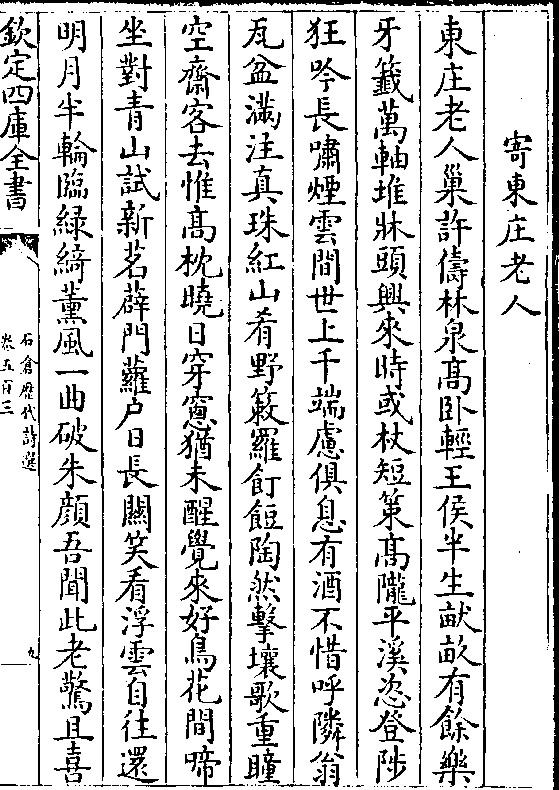 寄東庄老人
東庄老人巢許儔林泉高卧輕王侯半生畎畝有餘樂
牙籤萬軸堆牀頭興來時或杖短策高隴平溪恣登陟
狂吟長嘯煙雲間世上千端慮俱息有酒不惜呼隣翁
瓦盆滿注真珠紅山肴野蔌羅飣餖陶然擊壤歌重瞳
空齋客去惟高枕曉日穿窻猶未醒覺來好鳥花間啼
坐對青山試新茗薜門蘿户日長關笑看浮雲自往還
明月半輪臨緑綺薰風一曲破朱顔吾聞此老驚且喜
欽定四庫全書
石倉歴代詩選
卷五百三
九